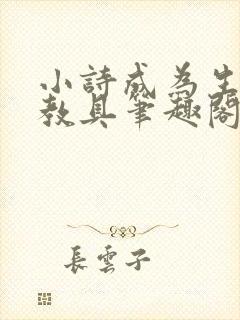 小詩成為生
教具筆趣閣
長雲子